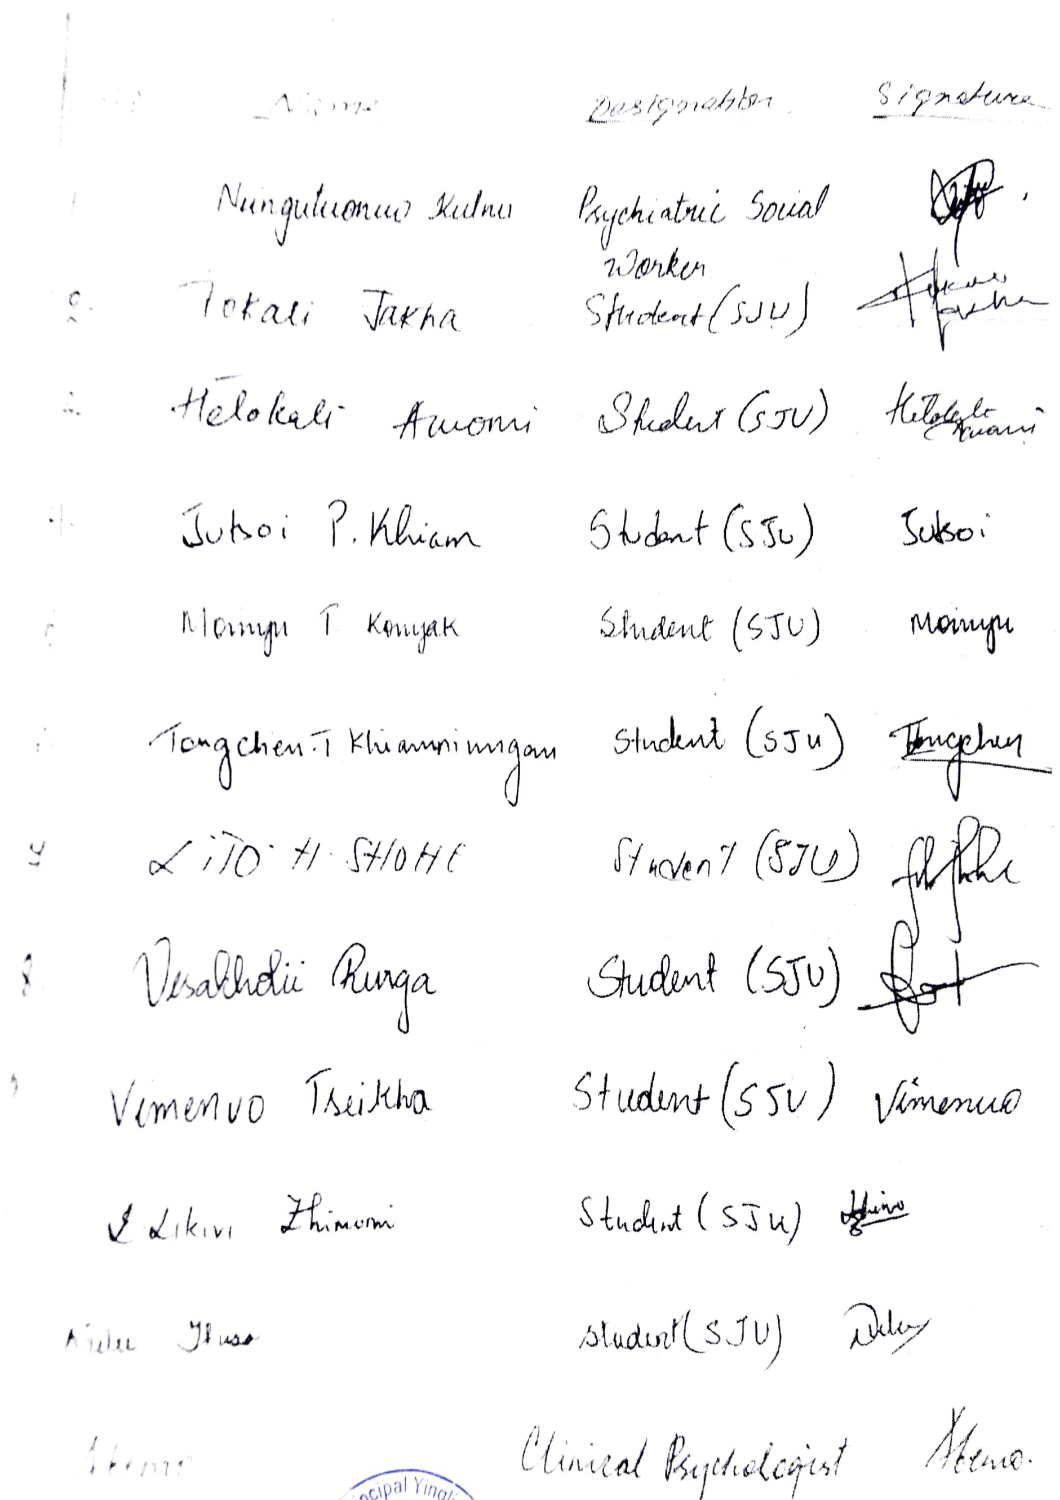 Name Designation Signature
Nungutuonuo Kulnu Psychiatric Social
Worker
2. Tokali Jakha Student (SJU)
Helokali Awomi Student (SJU) Helokali Awomi
4. Jutsoi P. Khiam Student (SJU) Jutsoi
Moinyu T Konyak Student (SJU) Moinyu
Tongchen.T Khiamniungan Student (SJU) Tongchen
LiTO H. SHOHE Student (SJU)
8. Student (SJU)
9 Vimenuo Tseikha Student (SJU) Vimenuo
Likivi Zhimomi Student (SJU)
Student (SJU)
Atemo Clinical Psychologist Atemo.